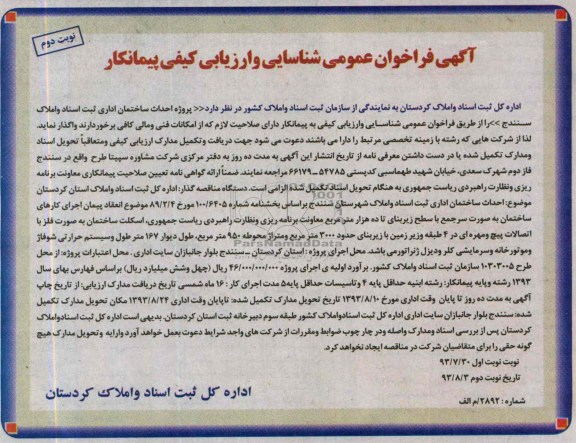 نوبت دوم
آگهی فراخوان عمومی شناسایی وارزیابی کیفی پیمانکار
اداره کل ثبت اسناد واملاک کردستان به نمایندگی از سازمان ثبت اسناد واملاک کشور در نظر دارد<< پروژه احداث ساختمان اداری ثبت اسناد واملاک
سنندج >>را از طریق فراخوان عمومی شناسایی وارزیابی کیفی به پیمانکار دارای صلاحیت لازم که از امکانات فنی ومالی کافی برخوردارند واگذار نماید.
لذا از شرکت هایی که رشته یا زمینه تخصصی مرتبط را دارا می باشند دعوت می شود جهت دریافت وتکمیل مدارک ارزیابی کیفی ومتعاقباً تحویل اسناد
ومدارک تکمیل شده با در دست داشتن معرفی نامه از تاریخ انتشار این آگهی به مدت ده روز به دفتر مرکزی شرکت مشاوره سپیتا طرح واقع در سنندج
فاز دوم شهرک سعدی، خیابان شهید طهماسبی کدپستی ۵۴۷۸۵ – ۶۶۱۷۹ مراجعه نمایند. ضمناً ارائه گواهی نامه تعیین صلاحیت پیمانکاری معاونت برنامه
ریزی ونظارت راهبردی ریاست جمهوری به هنگام تحویل اسناد تکمیل شده الزامی است. دستگاه مناقصه گذار: اداره کل ثبت اسناد واملاک استان کردستان
موضوع: احداث ساختمان اداری ثبت اسناد واملاک شهرستان سنندج براساس بخشنامه شماره ۱۰۰/۶۴۰۵ مورخ ۸۹/۲/۴ موضوع انعقاد پیمان اجرای کارهای
ساختمان به صورت سرجمع با سطح زیربنای تا ده هزار متر مربع معاونت برنامه ریزی ونظارت راهبردی ریاست جمهوری، اسکلت ساختمان به صورت فلز با
اتصالات پیچ ومهره ای در ۴ طبقه وزیر زمین با زیربنای حدود ۳۰۰۰ متر مربع ومتراژ محوطه ۹۵۰ متر مربع، طول دیوار ۱۶۷ متر طول وسیستم حرارتی شوفاژ
وموتورخانه وسرمایشی کلر ودیزل ژنراتور می باشد. محل اجرای پروژه : استان کردستان – سنندج بلوار جانبازان سایت اداری . محل اعتبارات پروژه: از محل
طرح ۱۰۳۰۳۰۰۵ سازمان ثبت اسناد واملاک کشور. برآورد اولیه ی اجرای پروژه ۴۶/۰۰۰/۰۰۰/۰۰۰ ریال (چهل وشش میلیارد ریال) براساس فهارس بهای سال
۱۳۹۳ رشته وپایه پیمانکار: رشته ابنیه حداقل پایه ۴ وتاسیسات حداقل پایه۵ مدت اجرای کار : ۱۶ ماه شمسی تاریخ دریافت مدارک ارزیابی: از تاریخ چاپ
آگهی به مدت ده روز تا پایان وقت اداری مورخ ۱۳۹۳/۸/۱۰ تاریخ تحویل مدارک تکمیل شده: تاپایان وقت اداری ۱۳۹۳/۸/۲۴ مکان تحویل مدارک تکمیل
شده: سنندج بلوار جانبازان سایت اداری اداره کل ثبت اسناد واملاک کشور طبقه سوم دبیرخانه ثبت استان کردستان بدیهی است اداره کل ثبت اسناد واملاک
کردستان پس از بررسی اسناد ومدارک واصله ودر چار چوب ضوابط ومقررات از شرکت های واجد شرایط دعوت بعمل خواهد آورد وارایه وتحویل مدارک هیچ
گونه حقی را برای متقاضیان شرکت در مناقصه ایجاد نخواهد کرد.
نوبت نوبت اول ۹۳/۷/۳۰
تاریخ نوبت دوم ۹۳/۸/۳
اداره کل ثبت اسناد واملاک کردستان
شماره : ۲۸۹۲/م الف
ParsNamadData